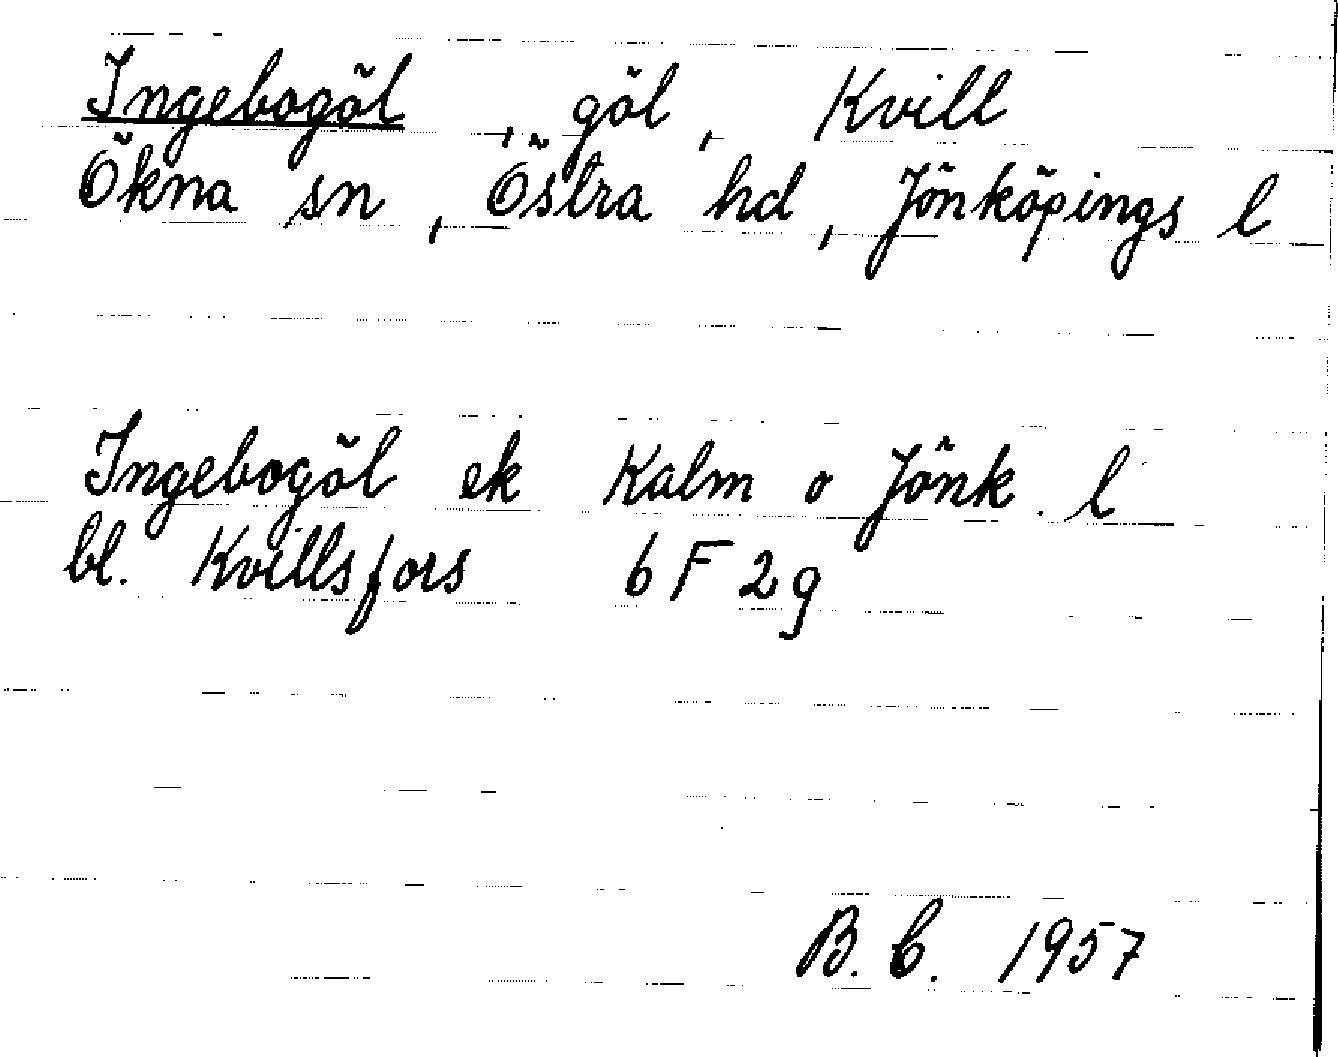 Ingebogöl, göl, Kvill
Ökna sn, Östra hd, Jönköpings l
Ingebogöl ek Kalm o Jönk. l
bl. Kvillsfors 6 F 2 g
B. C. 1957